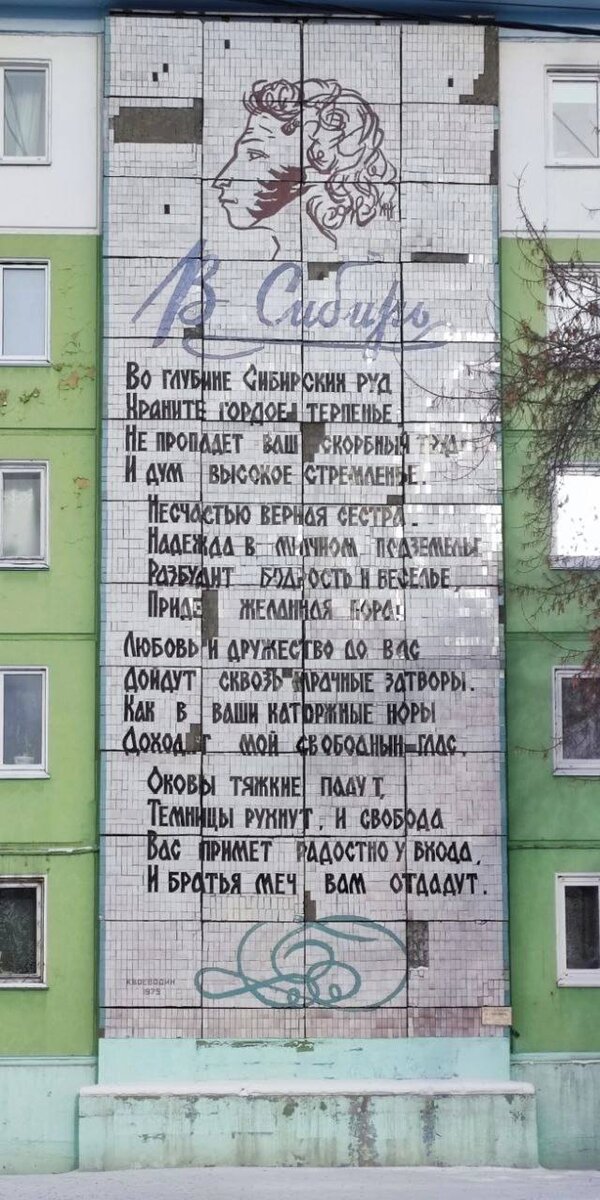 В Сибирь
Во глубине Сибирских руд
Храните гордое терпенье,
Не пропадет ваш скорбный труд
И дум высокое стремленье.
Несчастью верная сестра.
Надежда в мрачном подземелье
Разбудит бодрость и веселье,
Придет желанная пора:
Любовь и дружество до вас
Дойдут сквозь мрачные затворы.
Как в ваши каторжные норы
Доходит мой свободный глас.
Оковы тяжкие падут,
Темницы рухнут, и свобода
Вас примет радостно у входа,
И братья меч вам отдадут.
К.Воеводин
1975